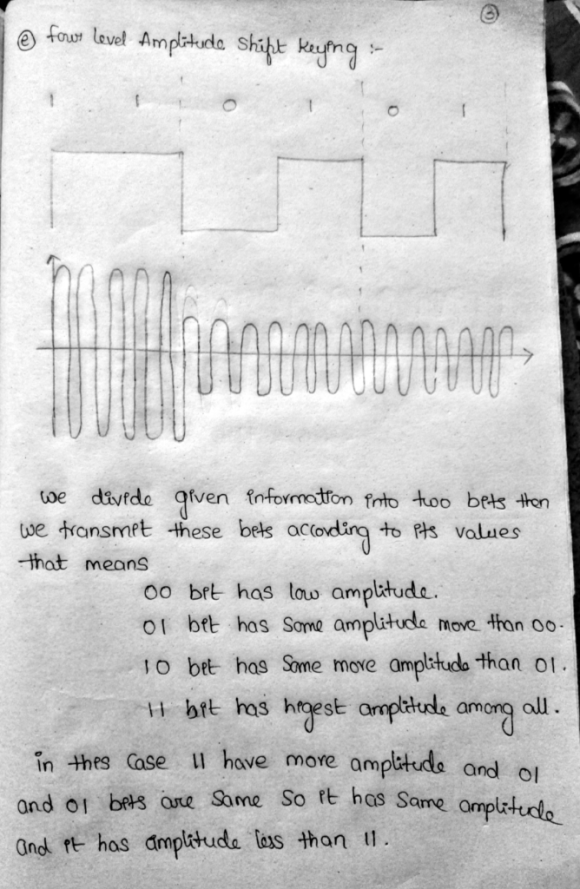 ③
ⓔ four level Amplitude Shift keying :-
1 1 0 1 0 1
we divide given information into two bits then
we transmit these bits according to its values
that means
00 bit has low amplitude.
01 bit has Some amplitude more than 00.
10 bit has Some more amplitude than 01.
11 bit has higest amplitude among all.
in this Case 11 have more amplitude and 01
and 01 bits are Same So it has Same amplitude
and it has amplitude less than 11.